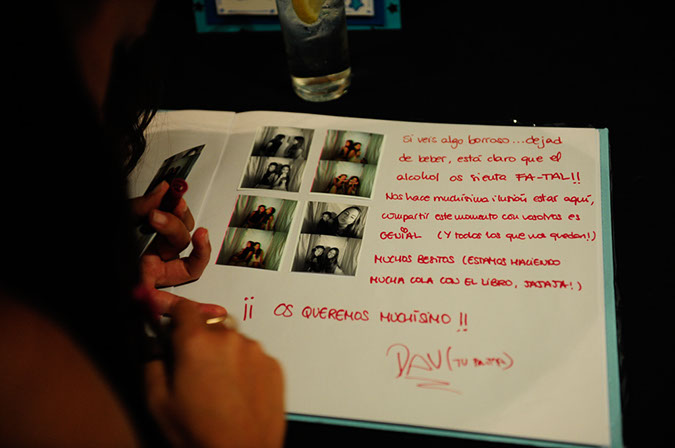 Si veis algo borroso...dejad
de beber, está claro que el
alcohol os sienta FA-TAL!!
Nos hace muchísima ilusión estar aquí,
compartir este momento con vosotros es
GENIAL (Y todos los que nos quedan!)
MUCHOS BESITOS (ESTAMOS HACIENDO
MUCHA COLA CON EL LIBRO, JAJAJA!)
¡¡ OS QUEREMOS MUCHÍSIMO !!
(TU